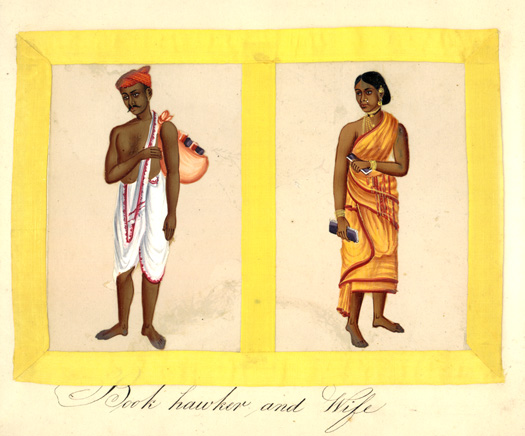 Book hawker and Wife